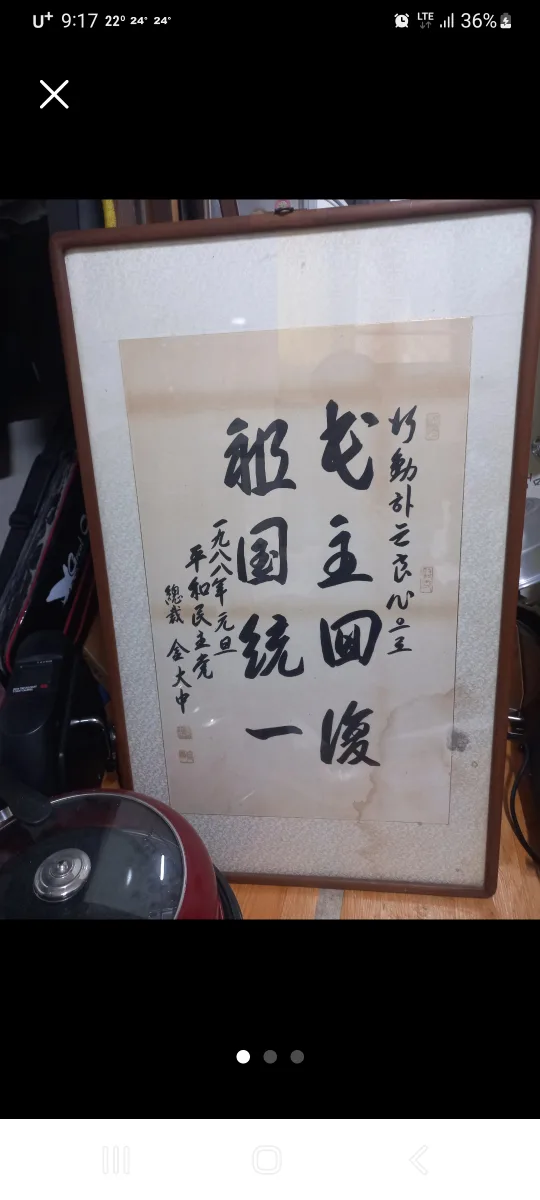 U+ 9:17 22° 24° 24°
LTE 36%
行動하는良心으로
民主回復
祖国統一
一九八八年元旦
平和民主党
總裁 金大中